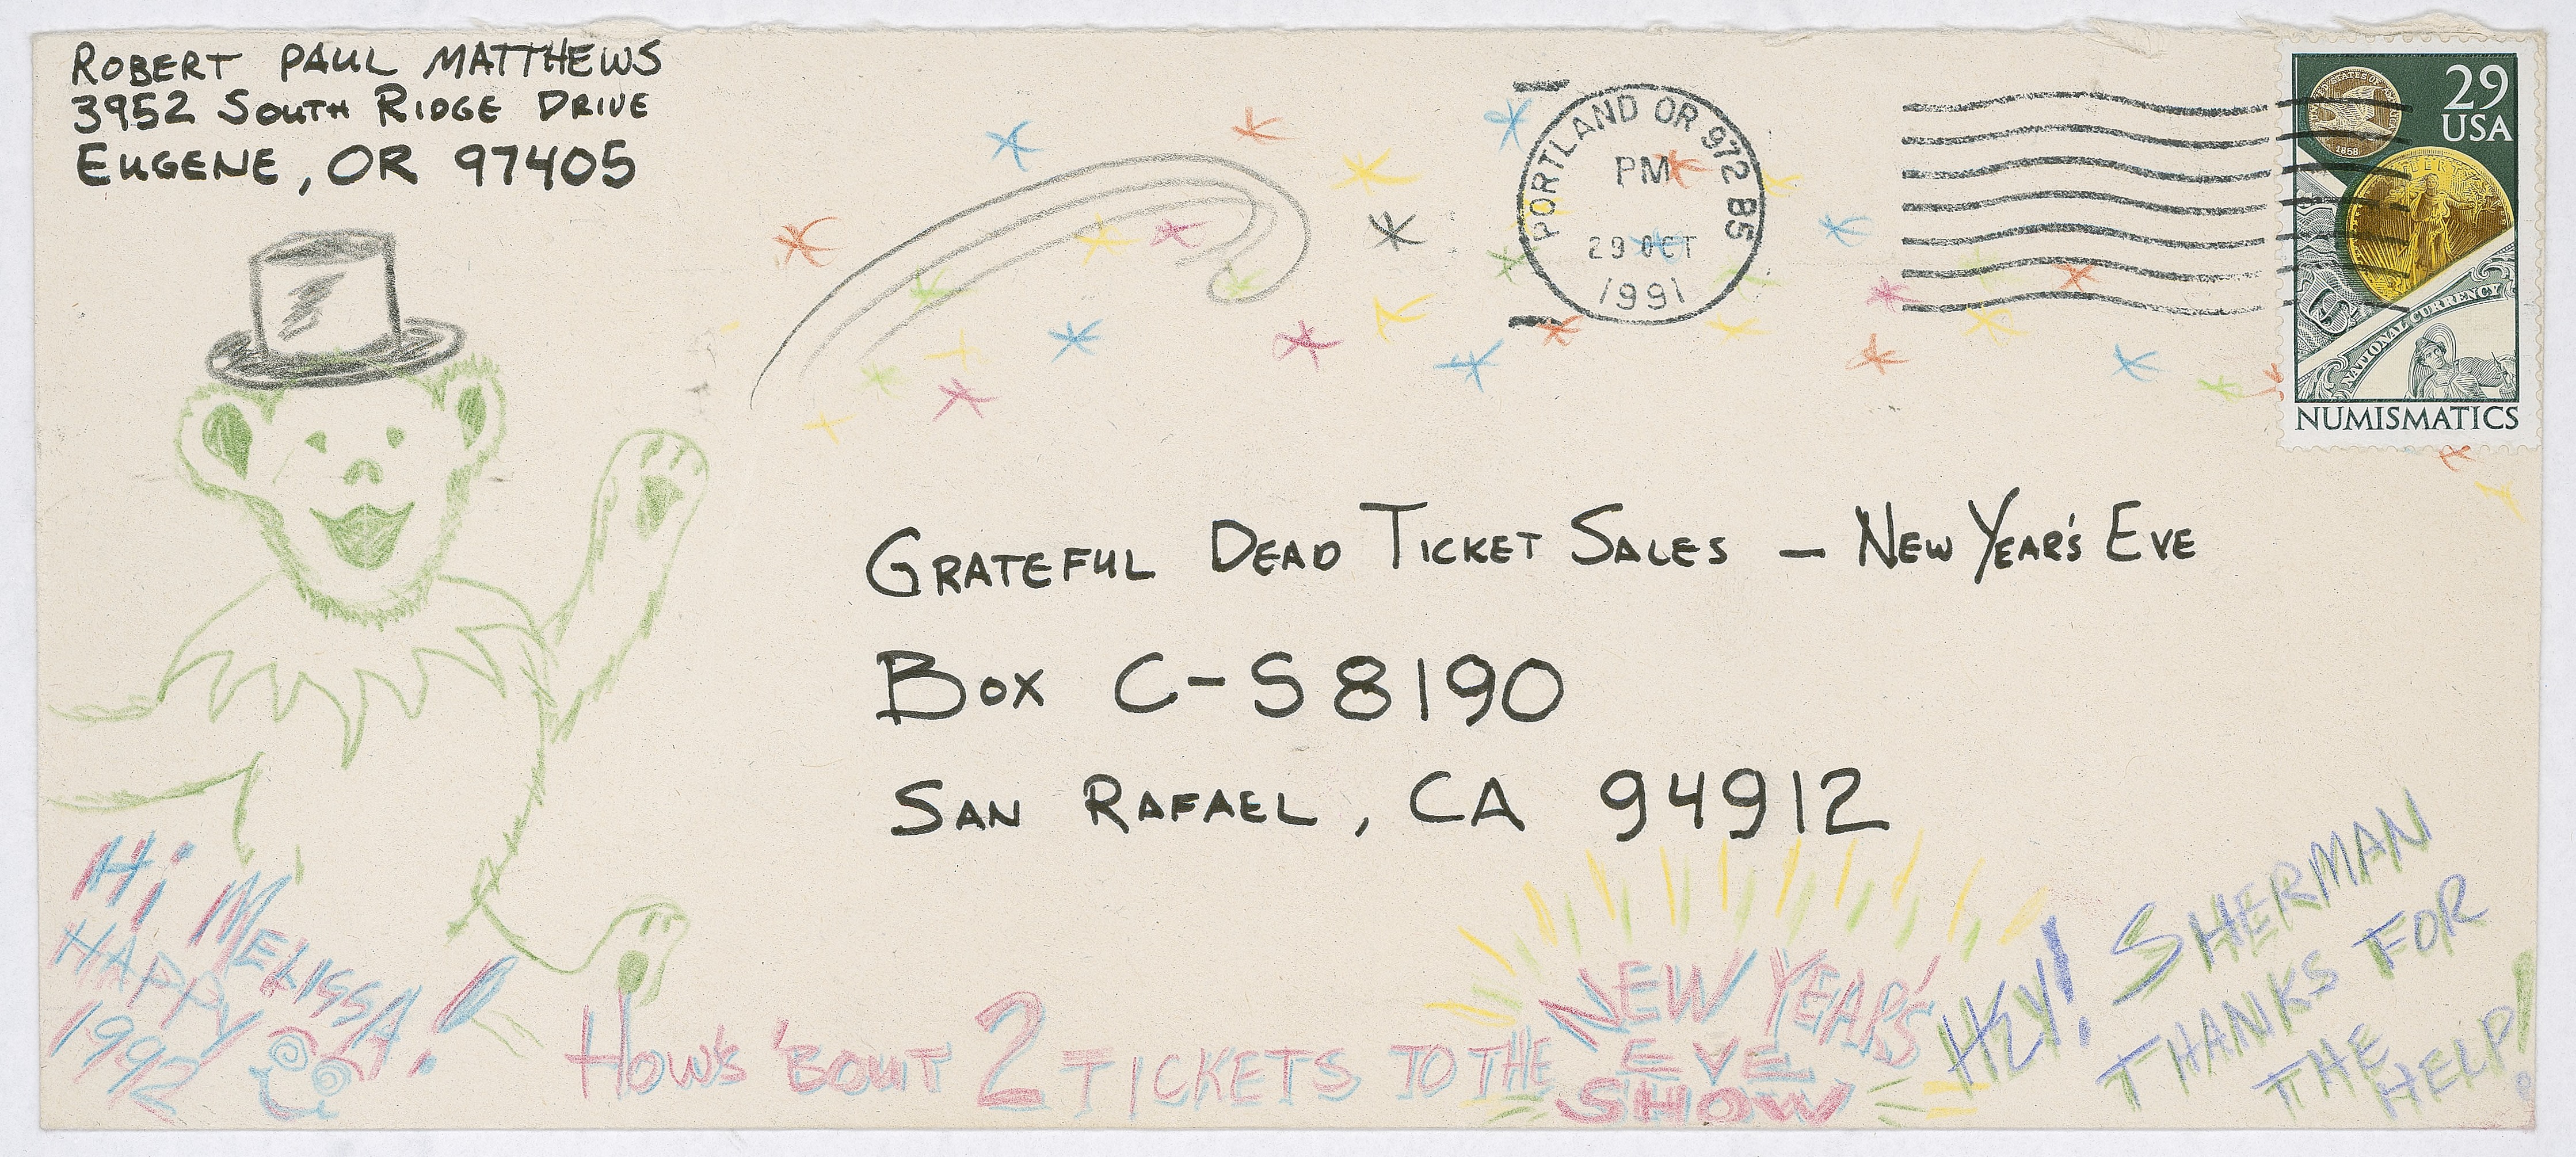 ROBERT PAUL MATTHEWS
3952 SOUTH RIDGE DRIVE
EUGENE, OR 97405
PORTLAND OR 972 B5
PM
29 OCT
1991
29
USA
UNITED STATES OF
1858
LIBERTY
NATIONAL CURRENCY
NUMISMATICS
GRATEFUL DEAD TICKET SALES — NEW YEAR'S EVE
BOX C-S 8190
SAN RAFAEL, CA 94912
Hi MELISSA!
HAPPY
1992
HOW'S 'BOUT 2 TICKETS TO THE
NEW YEAR'S
EVE
SHOW
HEY! SHERMAN
THANKS FOR
THE
HELP!